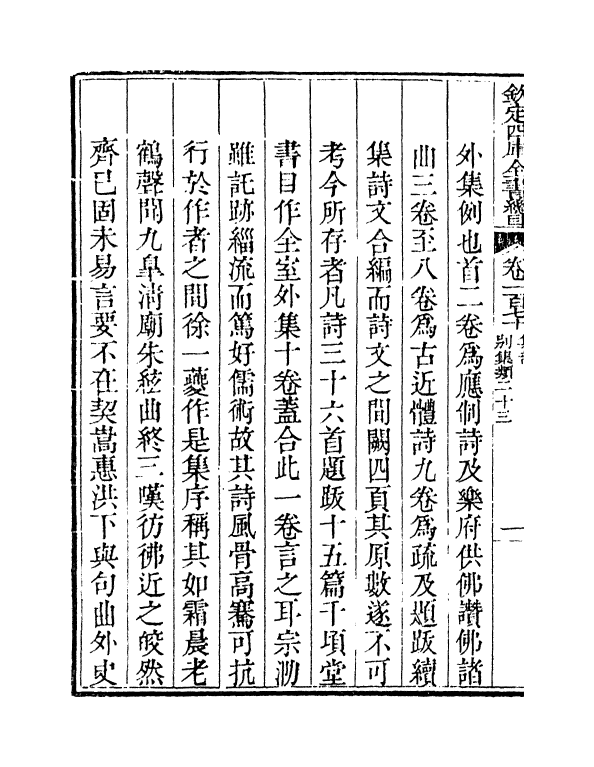 欽定四庫全書總目 卷一百七十 集部 別集類二十三 一
外集例也首二卷爲應制詩及樂府供佛讚佛諸
曲三卷至八卷爲古近體詩九卷爲疏及題跋續
集詩文合編而詩文之間闕四頁其原數遂不可
考今所存者凡詩三十六首題跋十五篇千頃堂
書目作全室外集十卷蓋合此一卷言之耳宗泐
雖託跡緇流而篤好儒術故其詩風骨高騫可抗
行於作者之間徐一夔作是集序稱其如霜晨老
鶴聲聞九臯淸廟朱絃曲終三嘆彷彿近之皎然
齊已固未易言要不在契嵩惠洪下與句曲外史